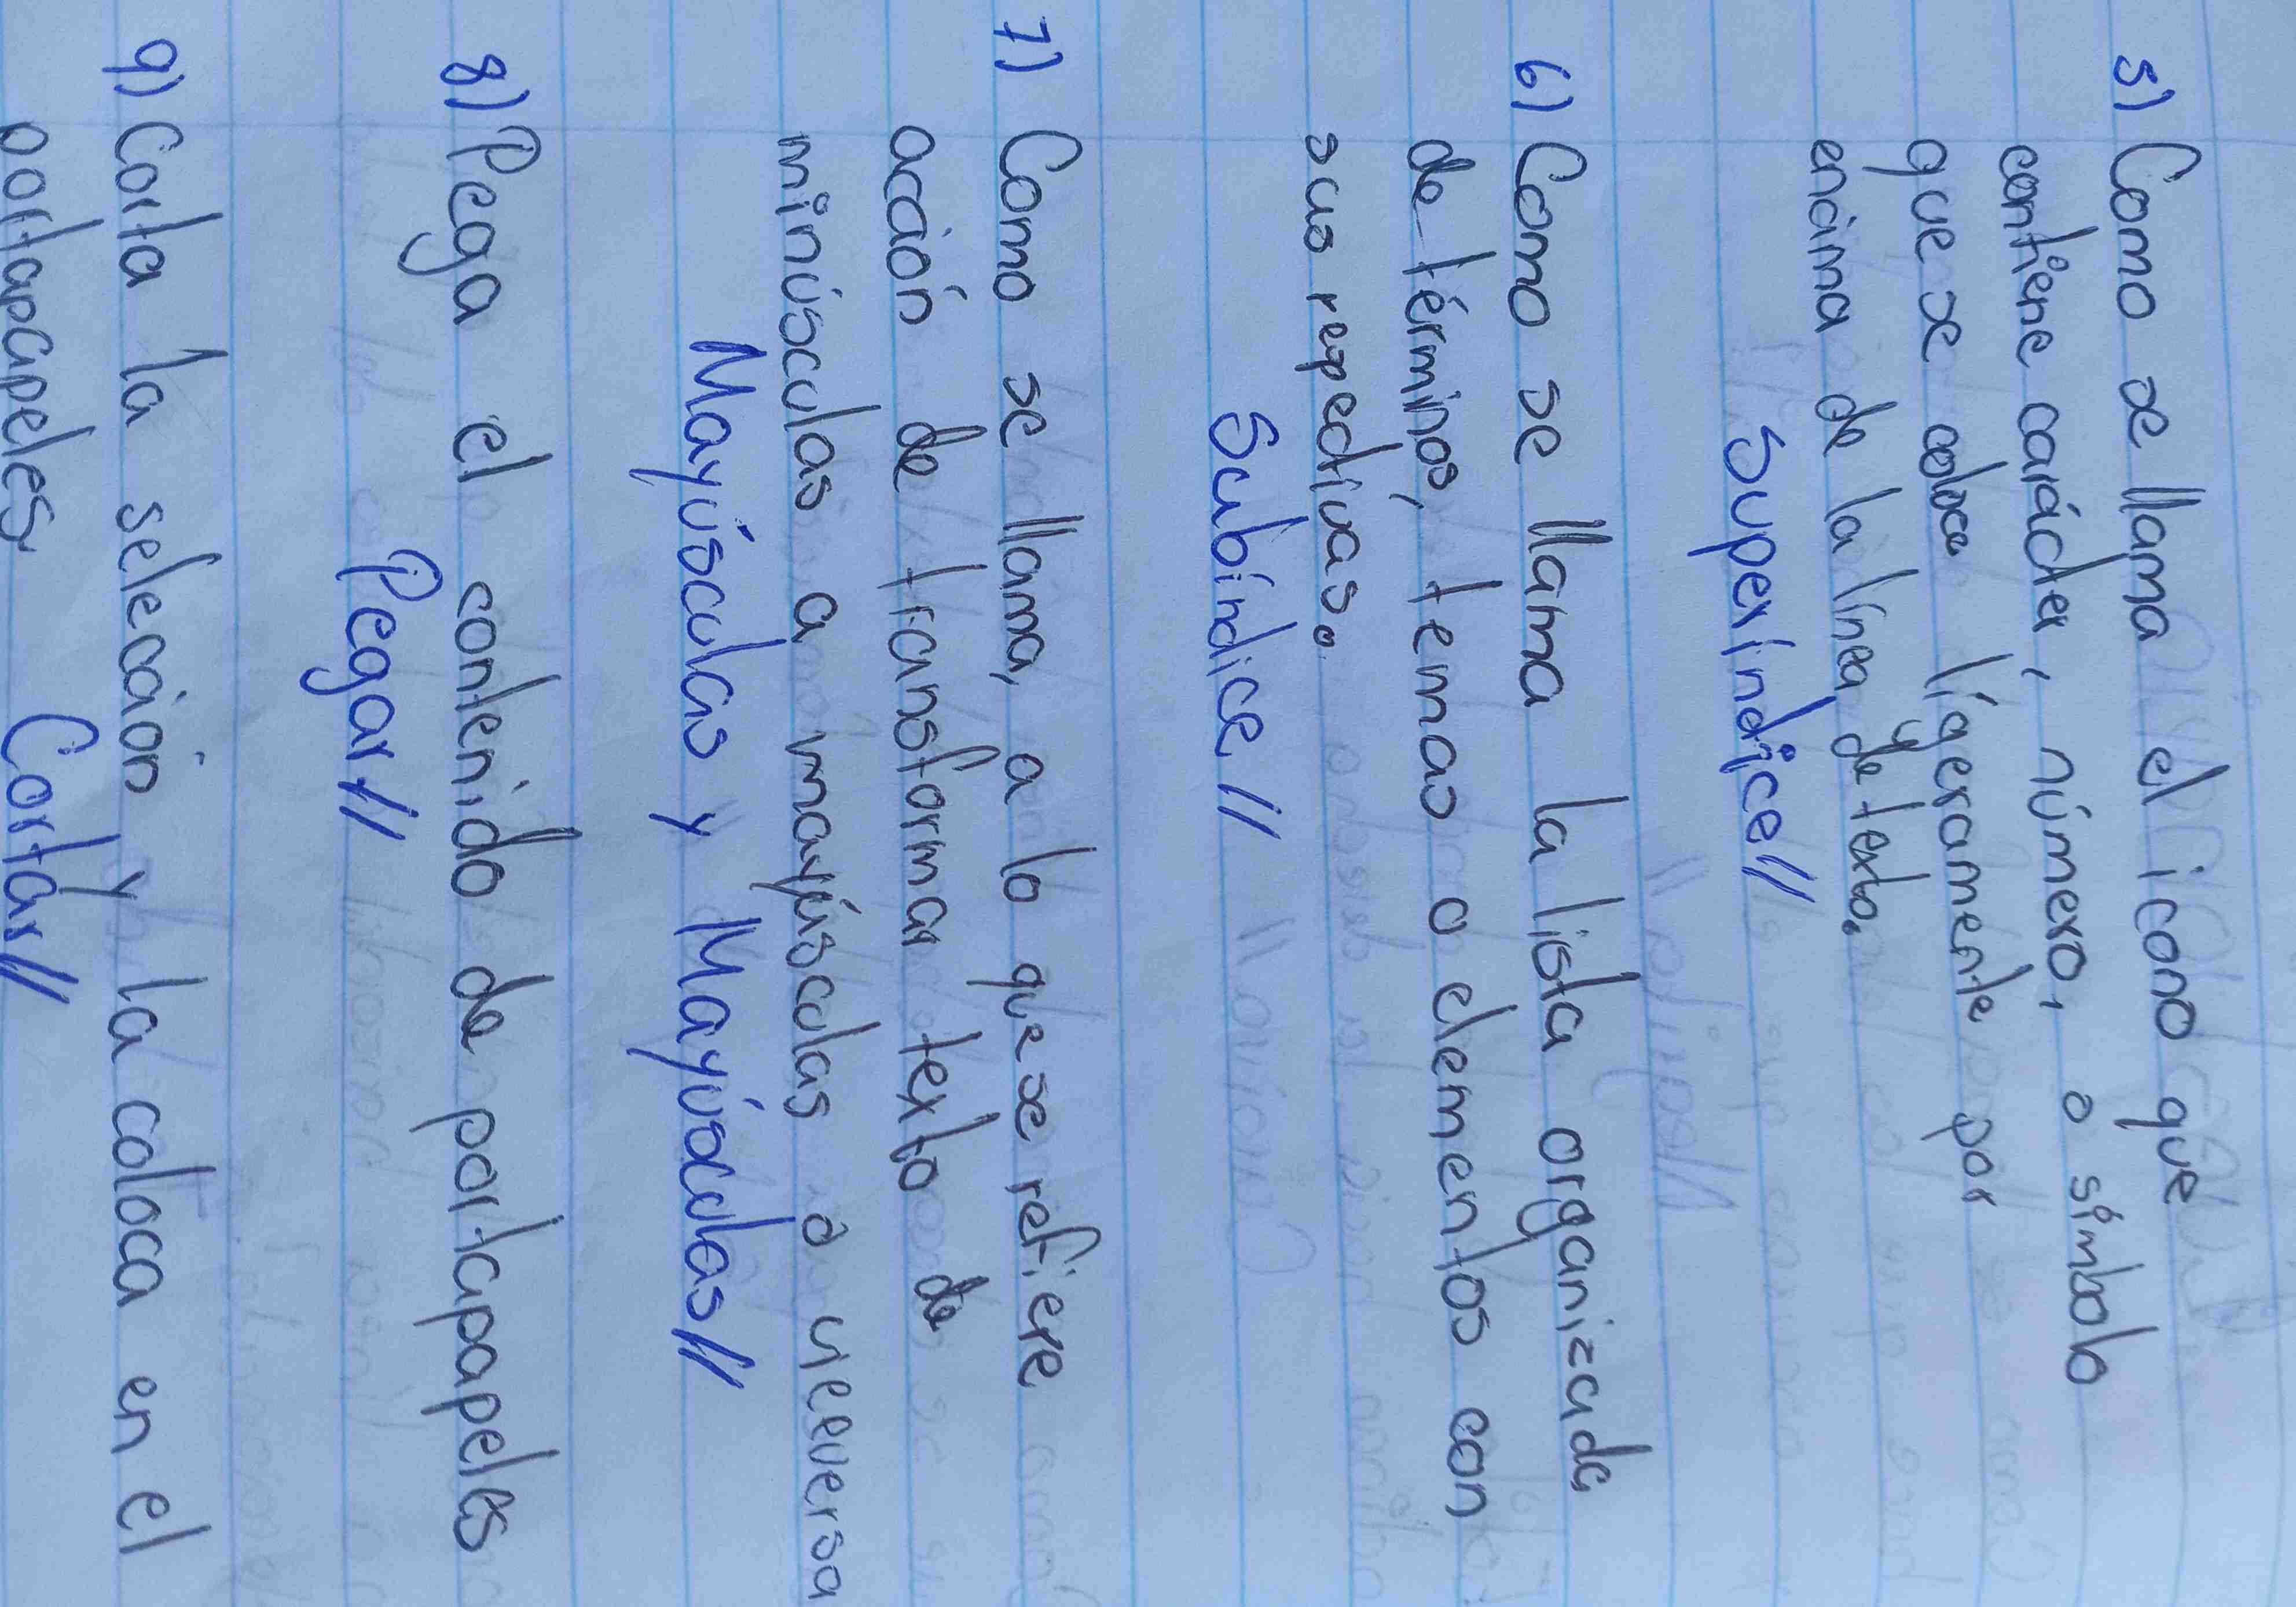 5) Como se llama el icono que
contiene carácter, número, o símbolo
que se coloca lígeramente por
encima de la línea de texto.
Superíndice//
6) Como se llama la lista organizada
de términos, temas o elementos con
sus repectivas.
Subíndice//
7) Como se llama, a lo que se refiere
acción de transformar texto de
minúsculas a mayúsculas o viceversa
Mayúsculas y Mayúsculas//
8) Pega el contenido de portapapeles
Pegar//
9) Corta la selección y la coloca en el
portapapeles Cortar//